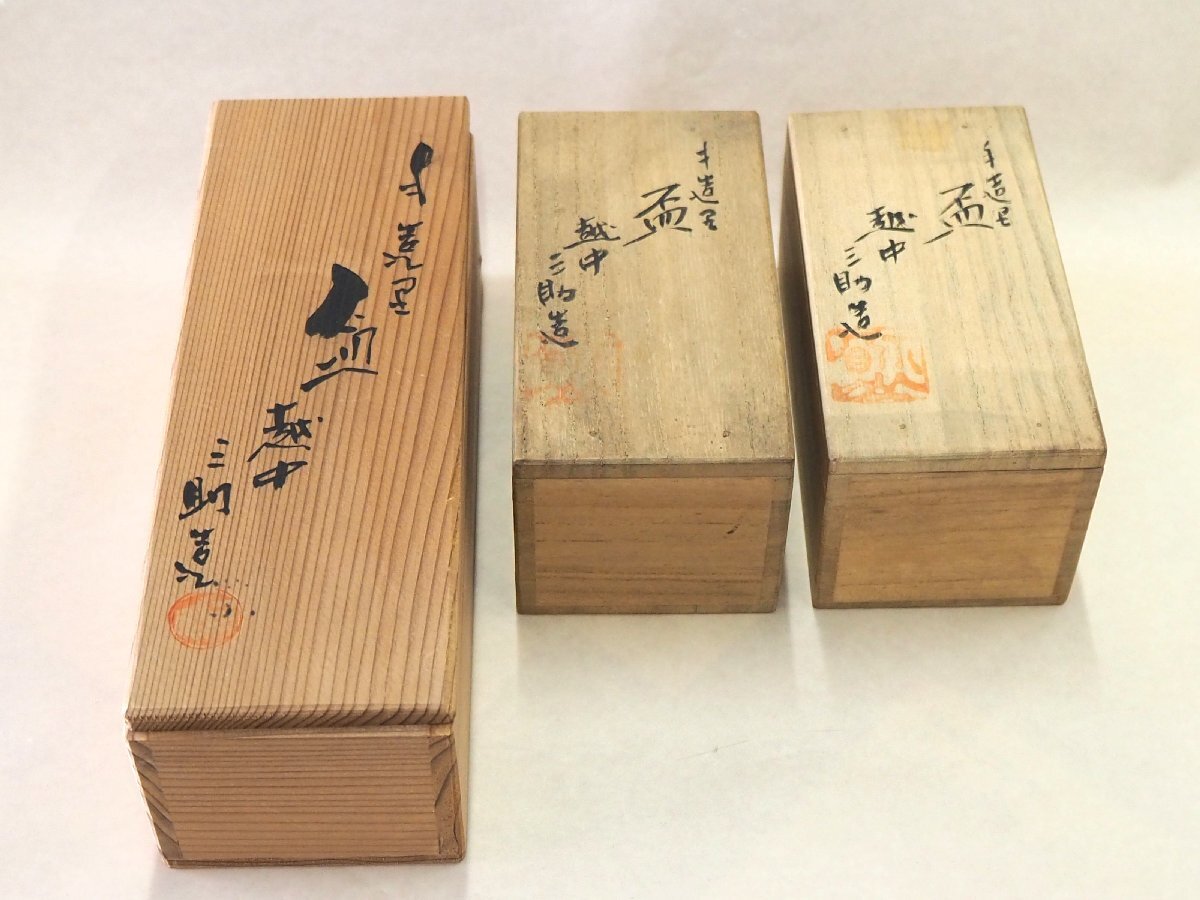 手造里
盃
越中
三助造
手造里
盃
越中
三助造
手造里
盃
越中
三助造